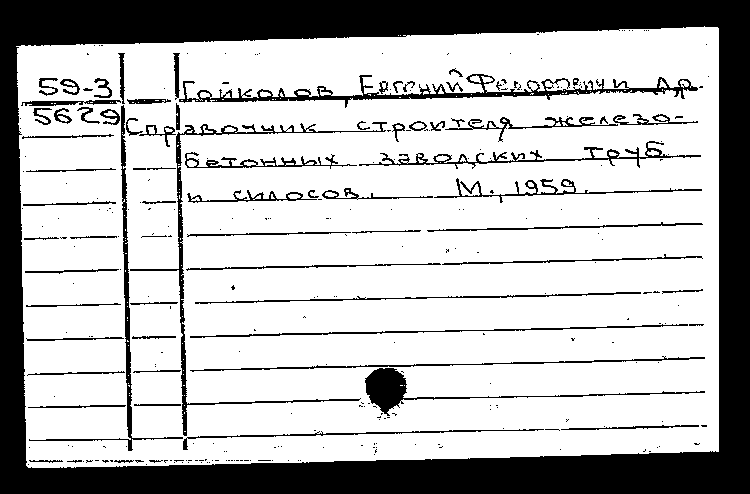 59-3 Гойколов, Евгений Федорович и др.
5629 Справочник строителя железо-
бетонных заводских труб
и силосов. М., 1959.